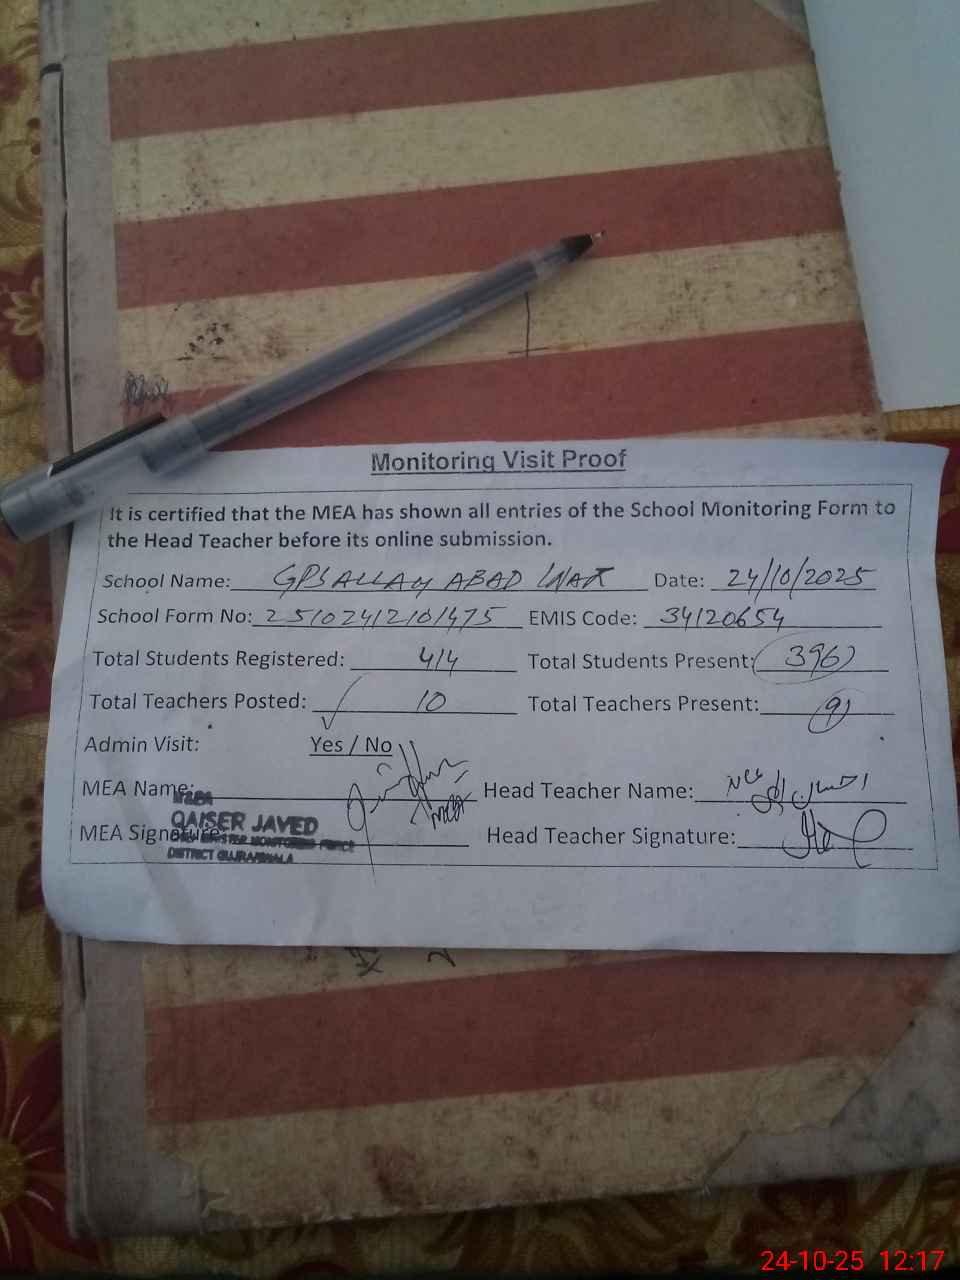 Monitoring Visit Proof
It is certified that the MEA has shown all entries of the School Monitoring Form to
the Head Teacher before its online submission.
School Name: GPS ALLAM ABAD Date: 24/10/2025
School Form No: 25102412101475 EMIS Code: 34120654
Total Students Registered: 414 Total Students Present: 396
Total Teachers Posted: 10 Total Teachers Present: 9
Admin Visit: Yes / No
MEA Name: Head Teacher Name: احسان اللہ
MEA Signature: Head Teacher Signature:
M&EA
QAISER JAVED
DISTRICT GUJRANWALA
24-10-25 12:17